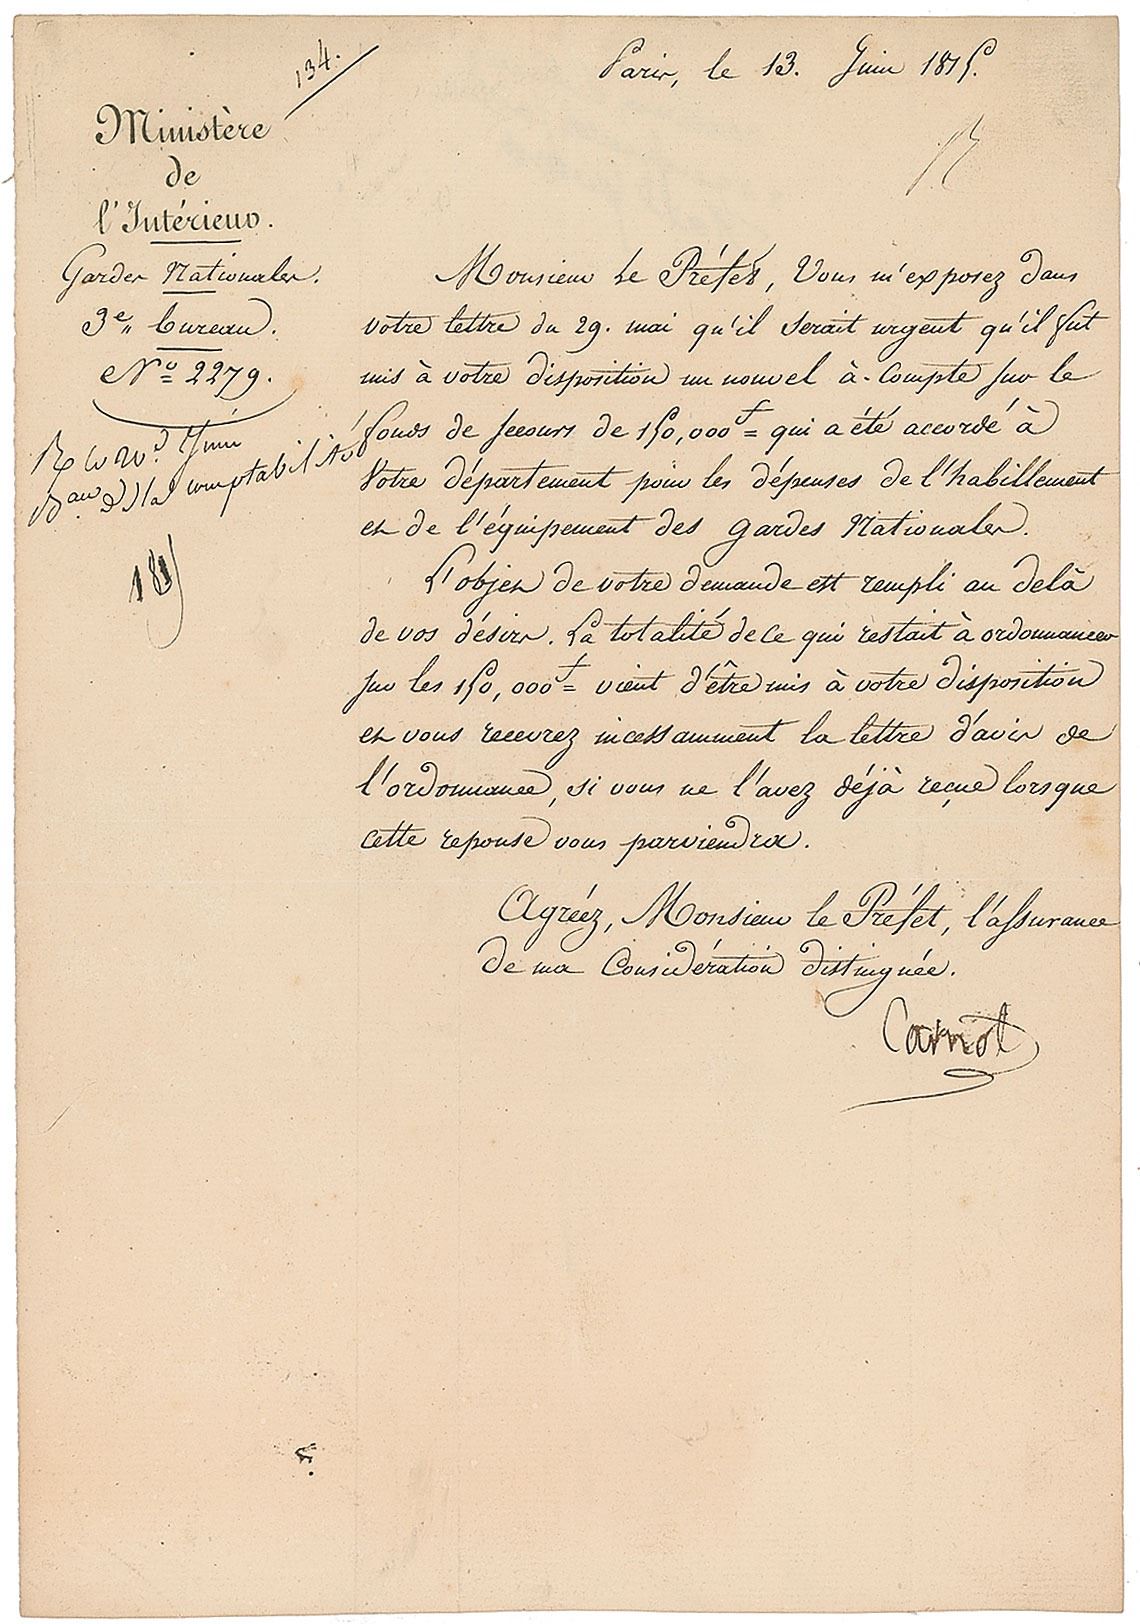 134.
Paris, le 13. Juin 1815.
Ministère
de
l'Intérieur.
Gardes Nationales.
3e. bureau.
No 2279.
Juin
Bau de la comptabilité
181
Monsieur Le Préfet, Vous m'exposez dans
votre lettre du 29. mai qu'il serait urgent qu'il fut
mis à votre disposition un nouvel à-compte sur le
fonds de secours de 150,000f = qui a été accordé à
Votre département pour les dépenses de l'habillement
et de l'équipement des gardes Nationales.
L'objet de votre demande est rempli au delà
de vos désirs. La totalité de ce qui restait à ordonnancer
sur les 150,000f = vient d'être mis à votre disposition
et vous recevrez incessamment la lettre d'avis de
l'ordonnance, si vous ne l'avez déjà reçue lorsque
cette reponse vous parviendra.
Agréez, Monsieur le Préfet, l'assurance
de ma Considération distinguée.
Carnot